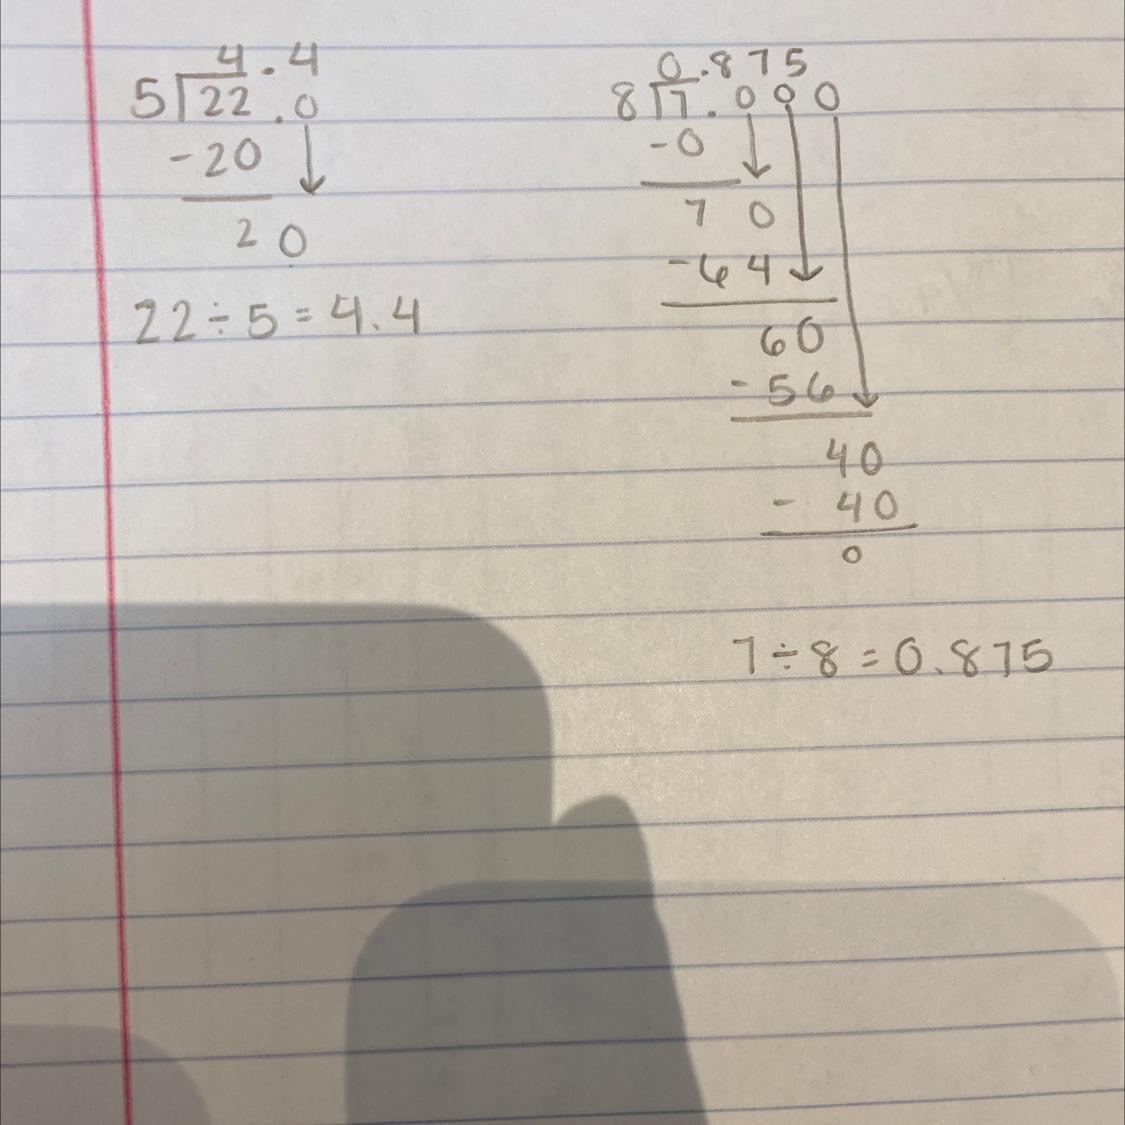 4.4
5 22.0
-20
20
22÷5=4.4
0.875
8 7.000
-0
70
-64
60
-56
40
- 40
0
7÷8=0.875